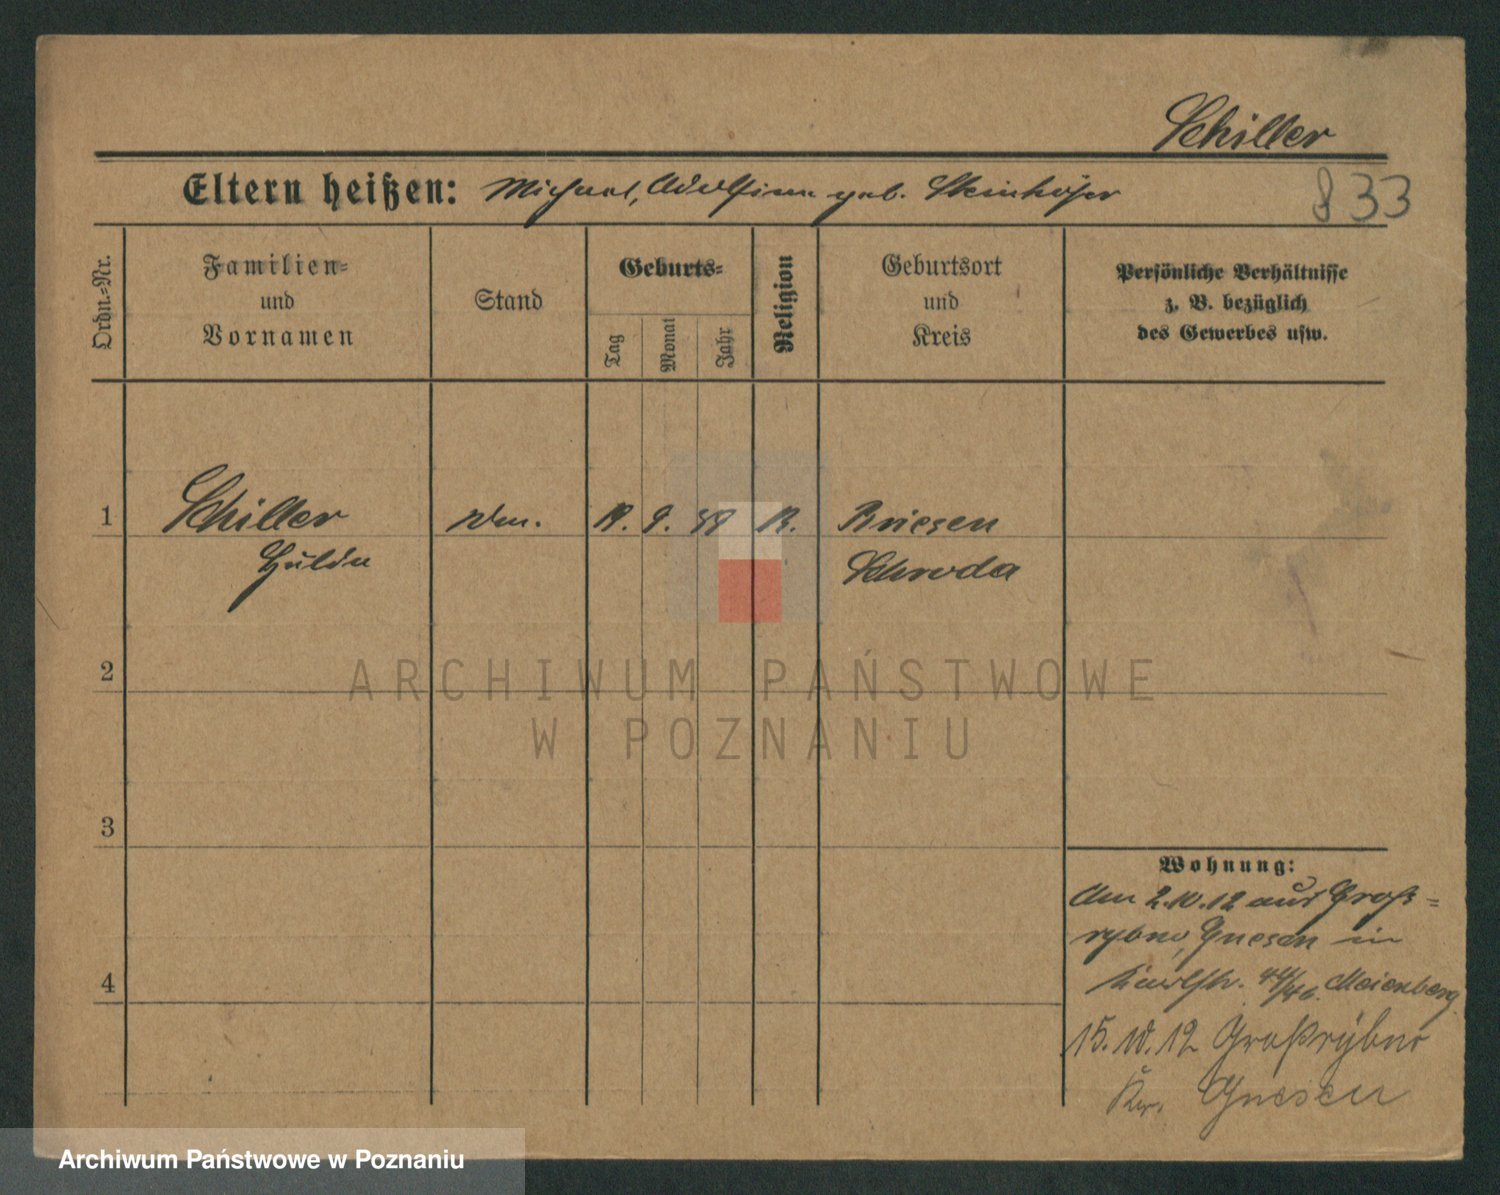 Schiller
Eltern heißen: Michael, geb. Steinhöfer
833
Ordn.=Nr.
Familien=
und
Vornamen
Stand
Geburts=
Tag
Monat
Jahr
Religion
Geburtsort
und
Kreis
Persönliche Verhältnisse
z. B. bezüglich
des Gewerbes usw.
1 Schiller 9. Briesen
Hulda Schroda
2
ARCHIWUM PAŃSTWOWE
W POZNANIU
3
Wohnung:
Am 2.10.12 aus Groß=
rybno, Gnesen in
44/46. Meienberg
4
15.10.12 Großrybno
Kr. Gnesen
Archiwum Państwowe w Poznaniu